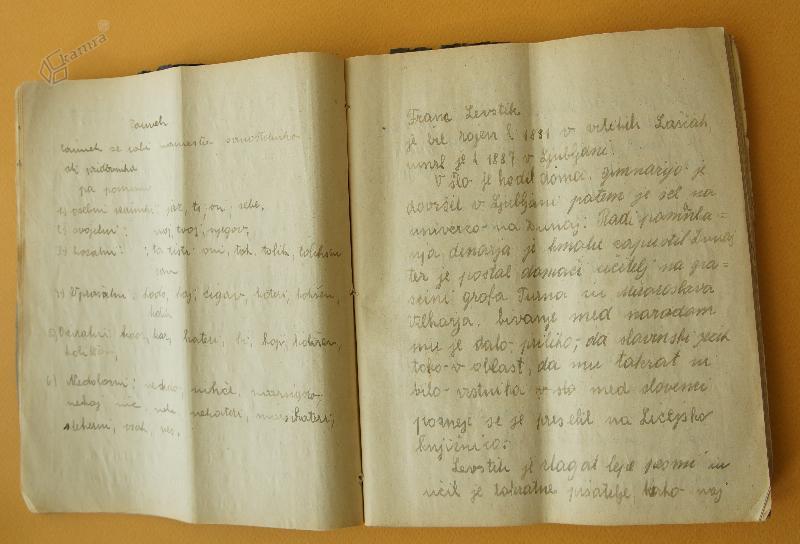 kamra
Zaimek
Zaimek se rabi namesto samostalnika
ali pridevnika
pa pomenu
1) osebni zaimek: jaz, ti, on, sebe,
2) svojilni: moj, tvoj, njegov,
3) kazalni: ta, tisti, oni, tak, tolik, tolikšen
4) Vprašalni: kdo, kaj, čigav, kateri, kakšen,
kolik
5) Oziralni: kdor, kar, kateri, ki, kakršen,
kolikor,
6) Nedoločni: nekdo, nihče, marsikdo
nekaj, nič, nekateri, marsikateri,
sleherni, vsak, ves,
Franc Levstik
je bil rojen l. 1831 v velikih Lašičah,
umrl je l 1887 v Ljubljani.
V šlo je hodil doma, gimnazijo je
dovršil v Ljubljani potem je šel na
univerzo na Dunaj. Radi pomankan=
nja denarja je kmalu zapustil Dunaj
ter je postal domači učitelj na gra=
ščini grafa Turna in Miroslava
Vilharja. bivanje med narodom
mu je dalo priliko, da slovenski jezik
tako v oblast, da mu takrat ni
bilo vrstnika v sto med slovenci
pozneje se je preselil na Licejsko
knjižnico.
Levstik je zlagal lepe pesmi in
učil je takratne pisatelje, kako naj